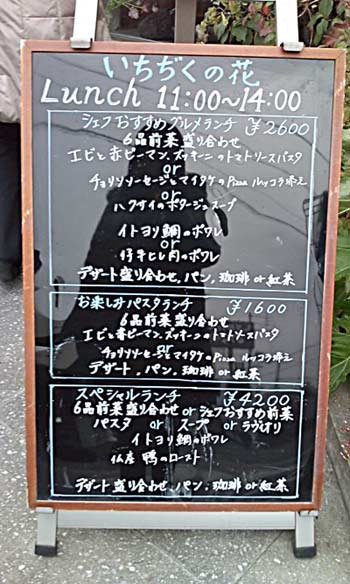 いちぢくの花
Lunch 11:00〜14:00
シェフおすすめグルメランチ ¥2600
6品前菜盛り合わせ
エビと赤ピーマン、ズッキーニのトマトソースパスタ
or
チョリソソーセージとマイタケのPizza ルッコラ添え
or
ハクサイのポタージュスープ
イトヨリ鯛のポワレ
or
仔牛ヒレ肉のポワレ
デザート盛り合わせ、パン、珈琲or紅茶
お楽しみパスタランチ ¥1600
6品前菜盛り合わせ
エビと赤ピーマン、ズッキーニのトマトソースパスタ
or
チョリソソーセージとマイタケのPizza ルッコラ添え
デザート、パン、珈琲or紅茶
スペシャルランチ ¥4200
6品前菜盛り合わせ orシェフおすすめ前菜
パスタ or スープ or ラヴィオリ
イトヨリ鯛のポワレ
仏産 鴨のロースト
デザート盛り合わせ、パン、珈琲or紅茶